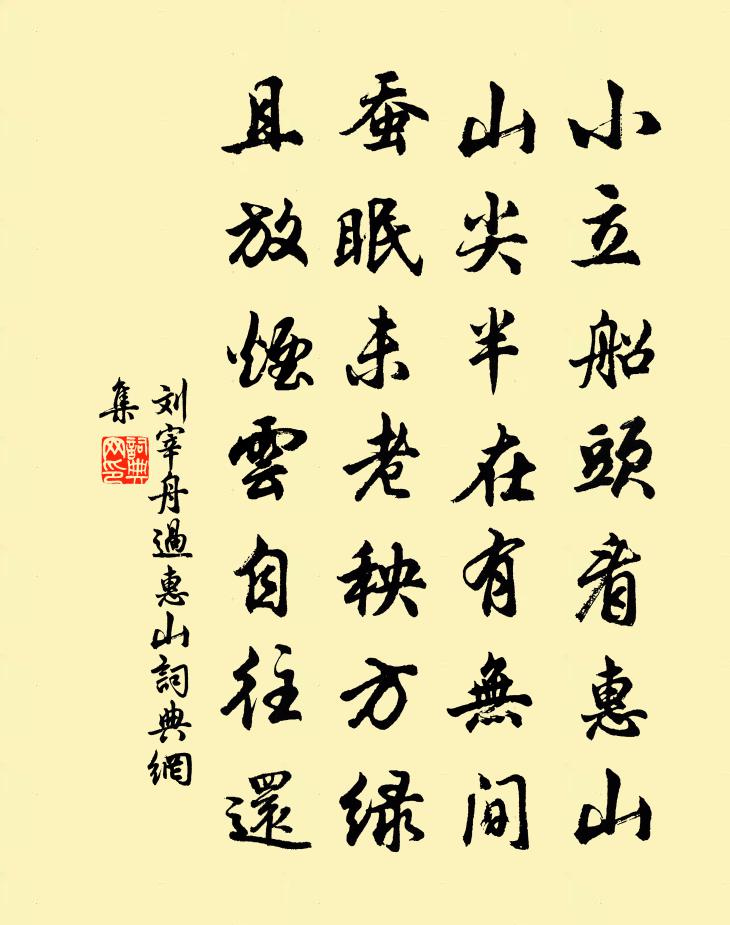 小立船頭看惠山
山尖半在有無間
蚕眠未老秧方緑
且放煙雲自往還
刘宰舟過惠山詞典網
集
詞典
网印